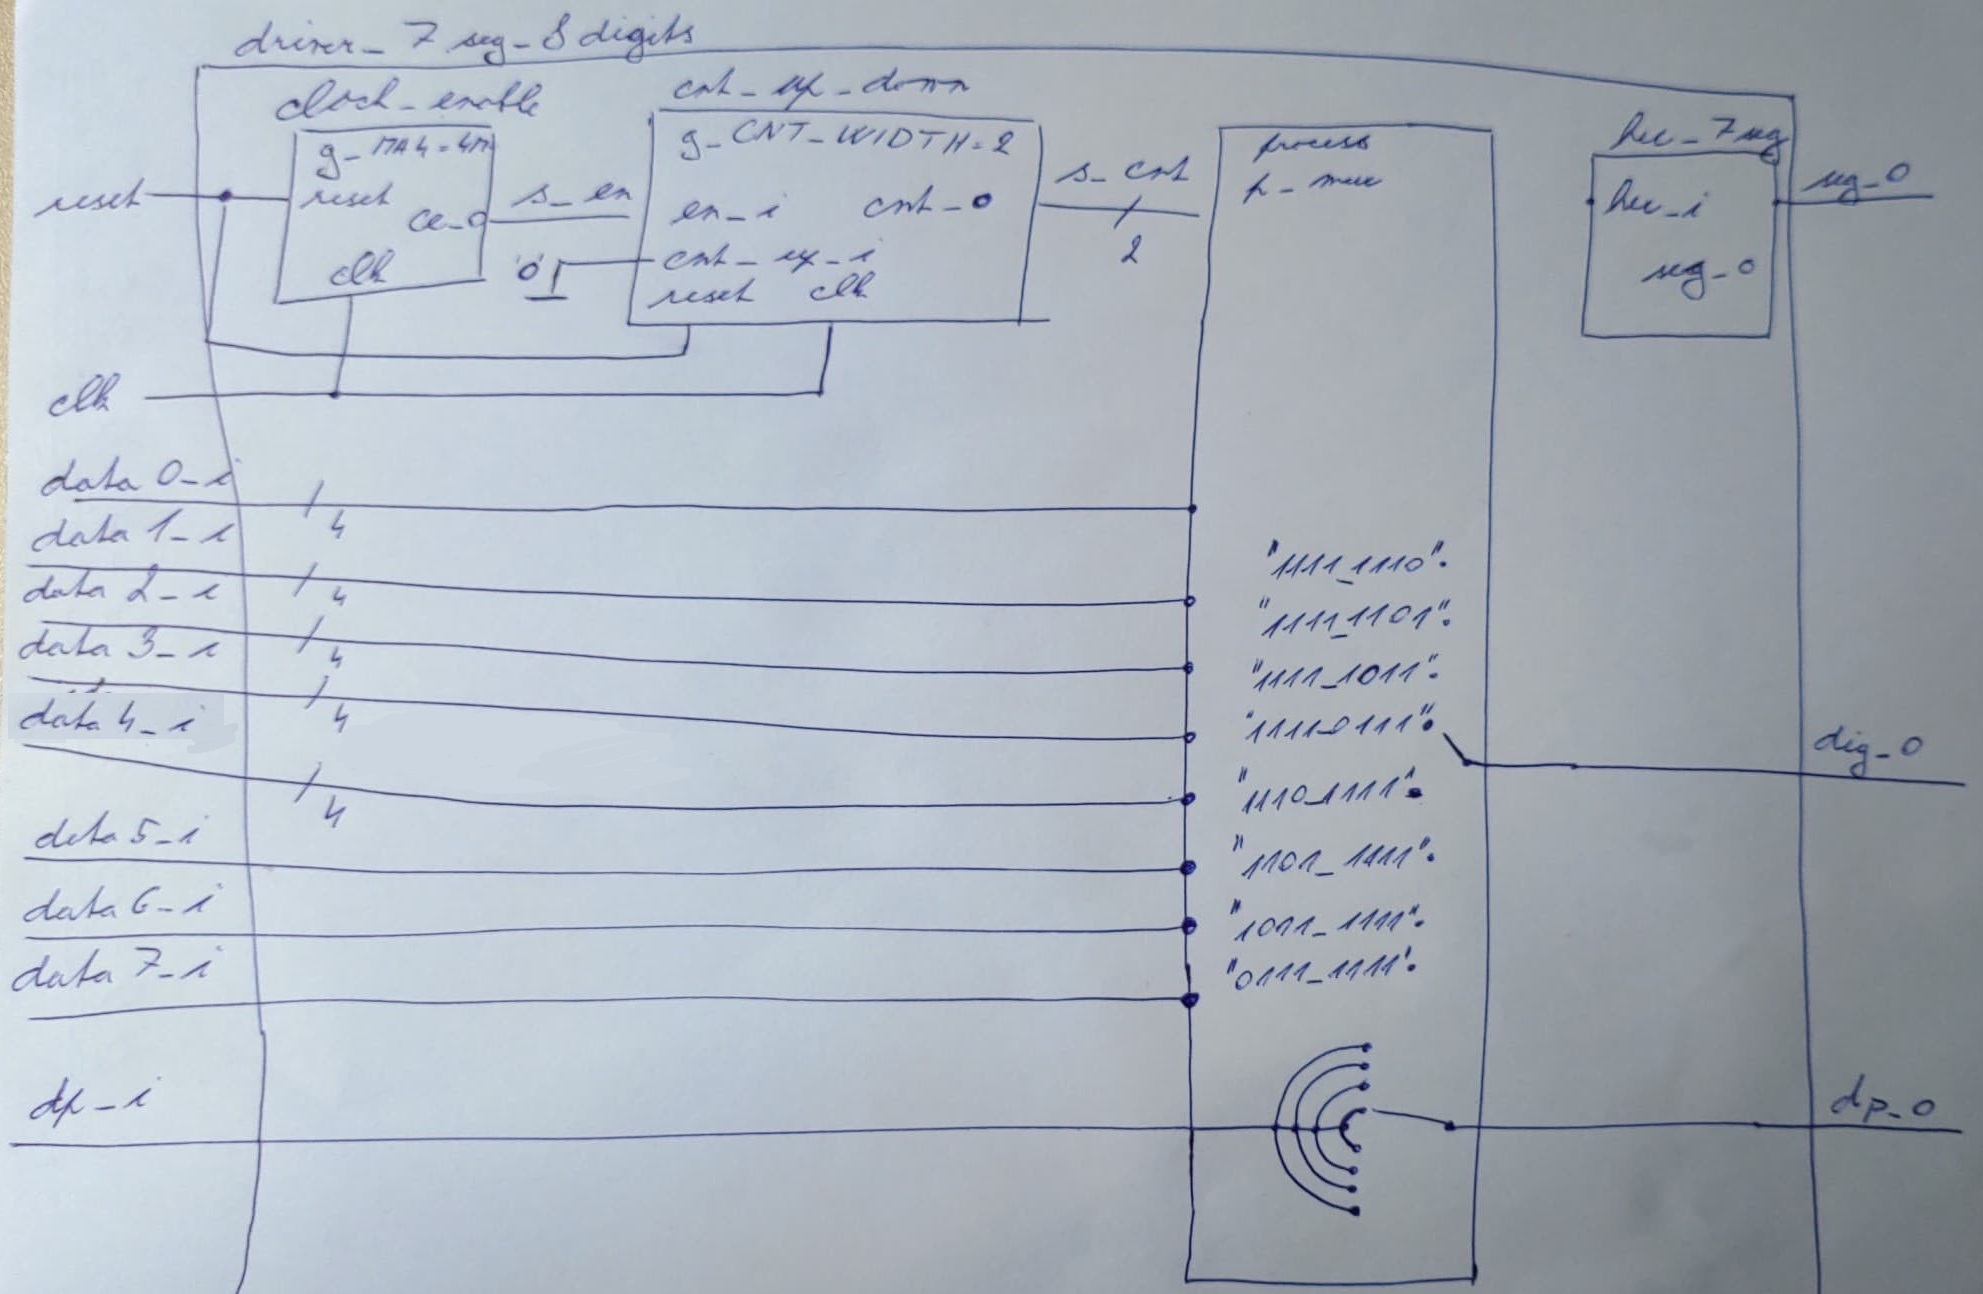 driver_7seg_8digits
clock_enable
g_MAX=4M
reset
ce_o
clk
s_en
cnt_up_down
g_CNT_WIDTH=2
en_i cnt_o
cnt_up_i
reset clk
'0'
s_cnt
2
process
p_mux
hex_7seg
hex_i
seg_o
seg_o
reset
clk
data 0_i
4
data 1_i
4
data 2_i
4
data 3_i
4
data 4_i
4
data 5_i
data 6_i
data 7_i
dp_i
"1111_1110"
"1111_1101"
"1111_1011"
"1111_0111"
"1110_1111"
"1101_1111"
"1011_1111"
"0111_1111"
dig_o
dp_o